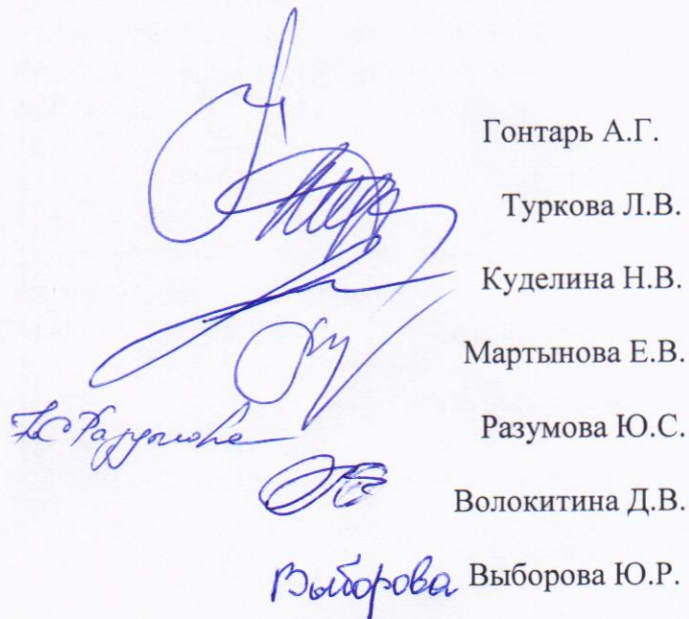 Гонтарь А.Г.
Туркова Л.В.
Куделина Н.В.
Мартынова Е.В.
Ю.С. Разумова Разумова Ю.С.
Волокитина Д.В.
Выборова Выборова Ю.Р.